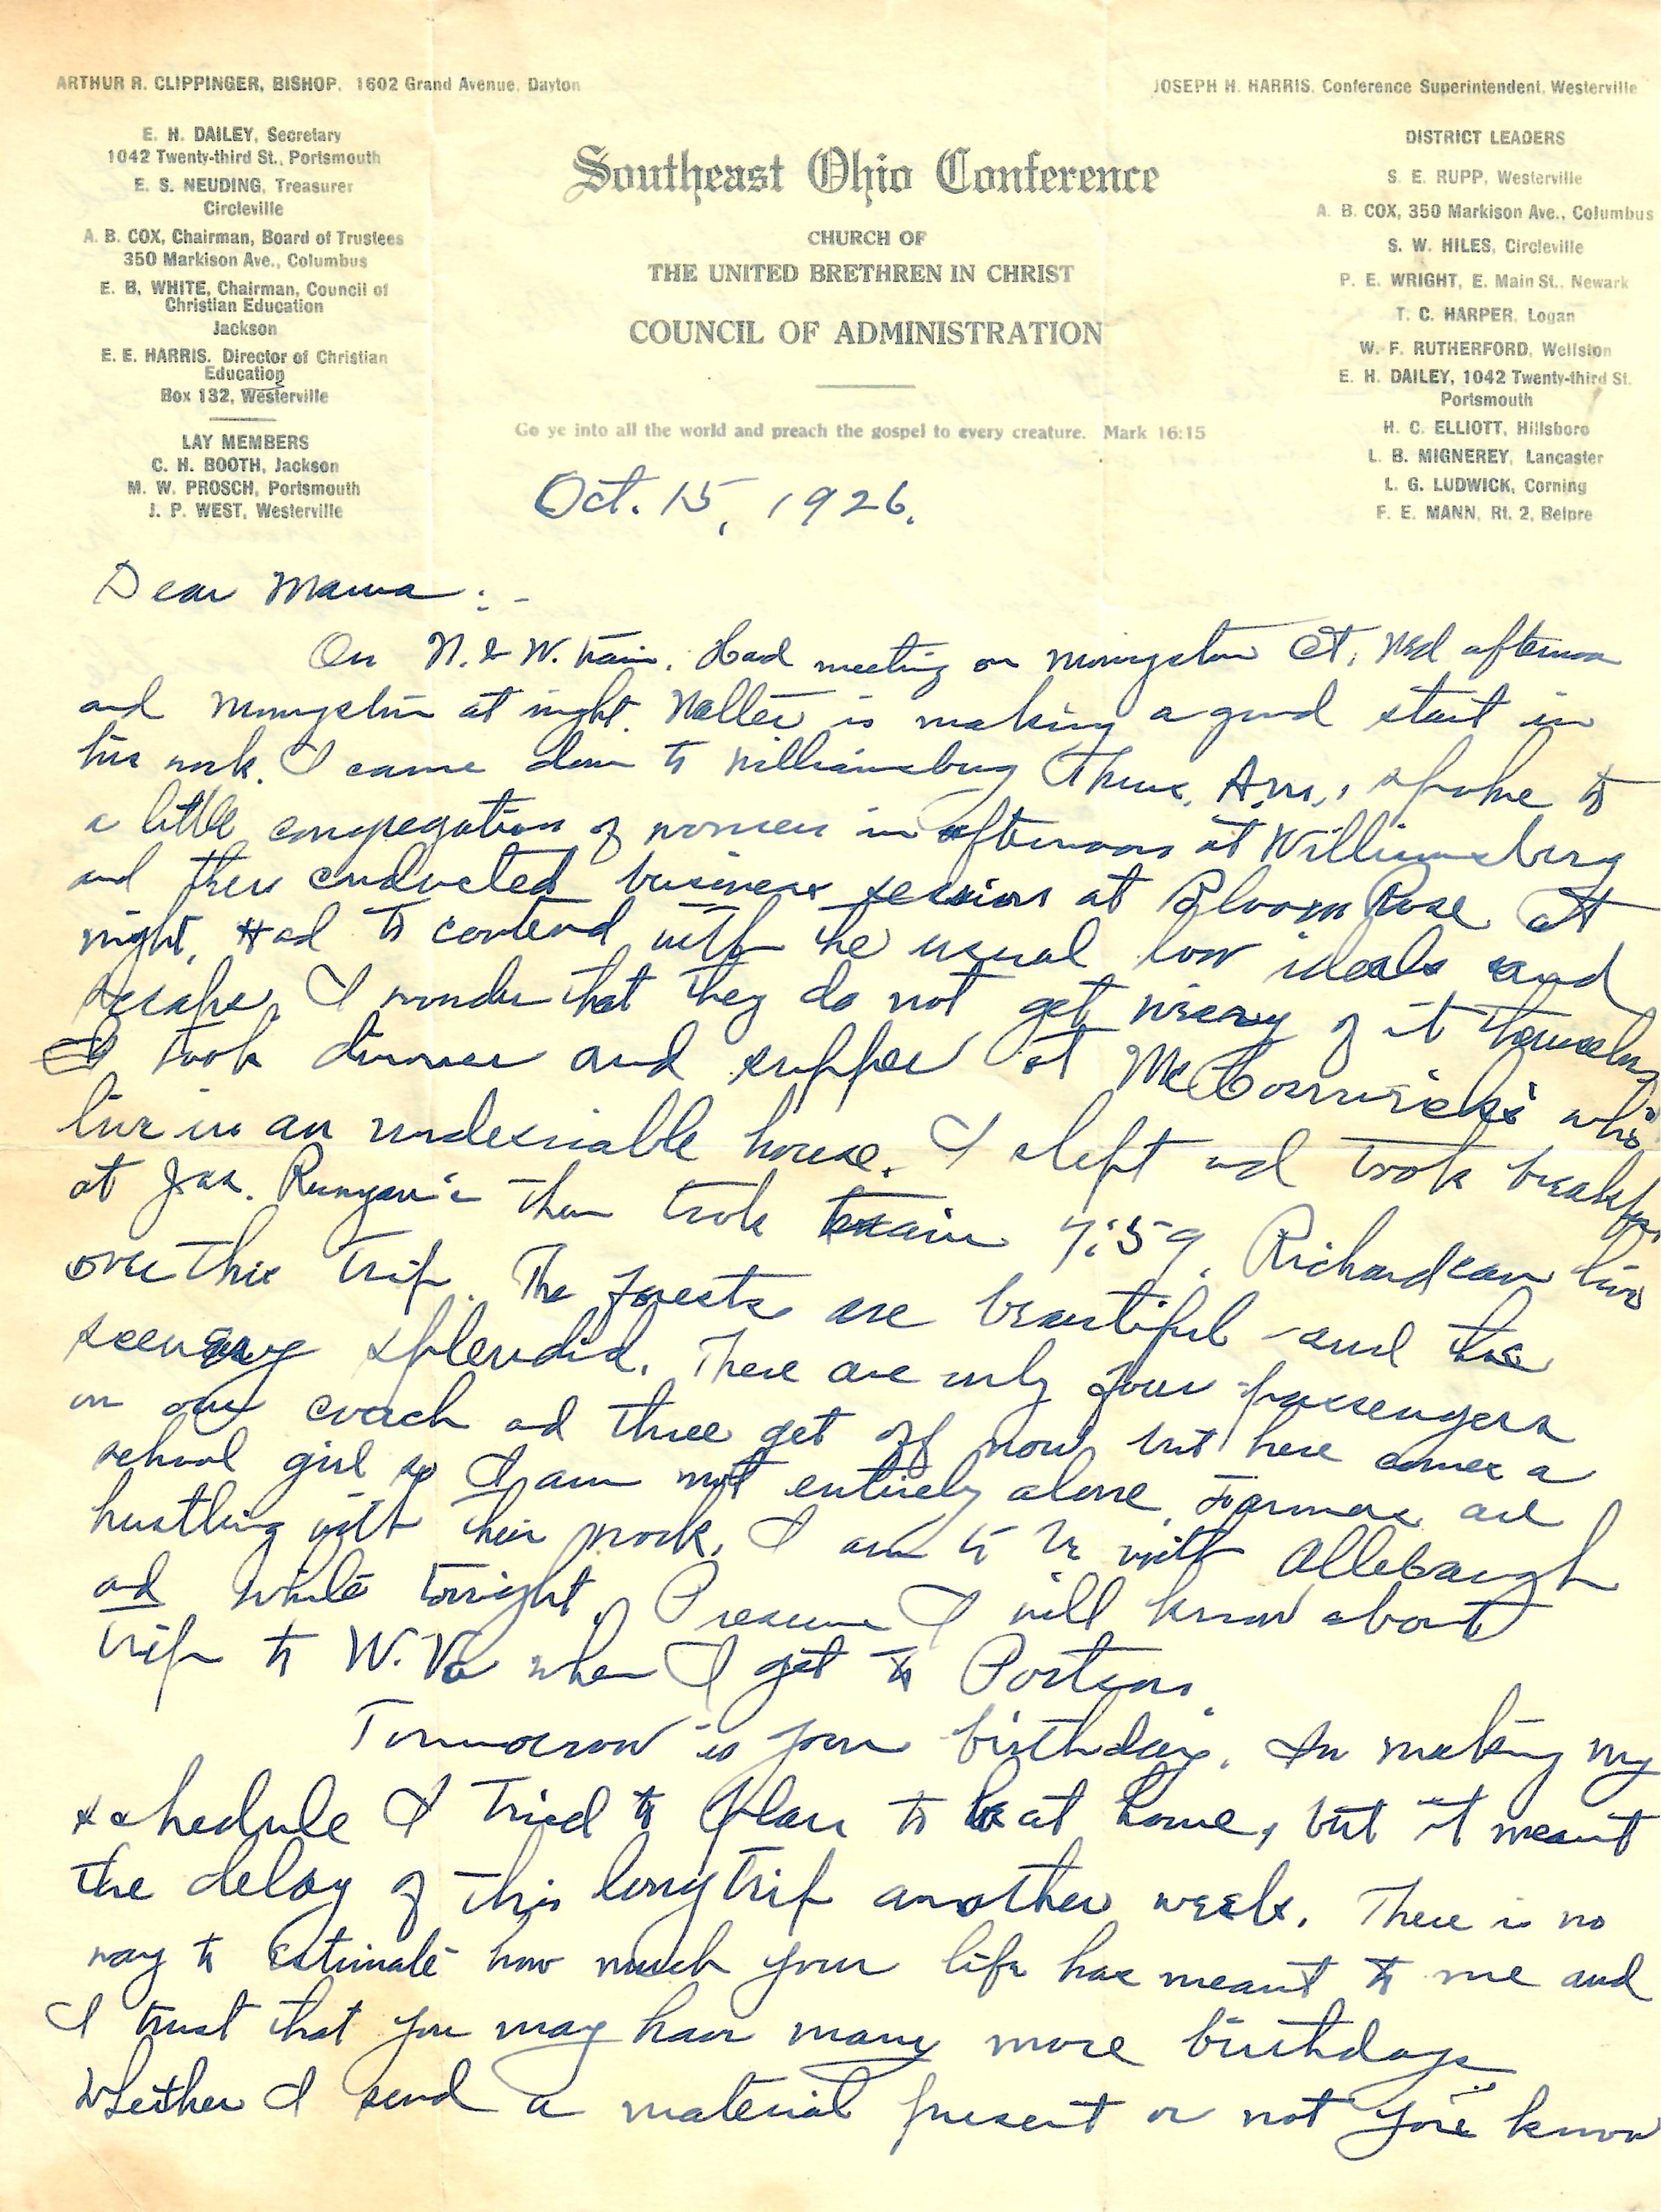 ARTHUR R. CLIPPINGER, BISHOP. 1602 Grand Avenue, Dayton
E. H. DAILEY, Secretary
1042 Twenty-third St., Portsmouth
E. S. NEUDING, Treasurer
Circleville
A. B. COX, Chairman, Board of Trustees
350 Markison Ave., Columbus
E. B. WHITE, Chairman, Council of
Christian Education
Jackson
E. E. HARRIS. Director of Christian
Education
Box 132, Westerville
LAY MEMBERS
C. H. BOOTH, Jackson
M. W. PROSCH, Portsmouth
J. P. WEST, Westerville
Southeast Ohio Conference
CHURCH OF
THE UNITED BRETHREN IN CHRIST
COUNCIL OF ADMINISTRATION
Go ye into all the world and preach the gospel to every creature. Mark 16:15
JOSEPH H. HARRIS, Conference Superintendent, Westerville
DISTRICT LEADERS
S. E. RUPP, Westerville
A. B. COX, 350 Markison Ave., Columbus
S. W. HILES, Circleville
P. E. WRIGHT, E. Main St., Newark
T. C. HARPER, Logan
W. F. RUTHERFORD, Wellston
E. H. DAILEY, 1042 Twenty-third St.
Portsmouth
H. C. ELLIOTT, Hillsboro
L. B. MIGNEREY, Lancaster
L. G. LUDWICK, Corning
F. E. MANN, Rt. 2, Belpre
Oct. 15, 1926.
Dear Mama:-
On N. & W. train. Had meeting on Ct. Wed afternoon
and at night. Walter is making a good start in
his work. I came down to Williamsburg Thurs. A.m., spoke to
a little congregation of women in afternoon at Williamsburg
and then conducted business session at Bloom Rose at
night. Had to contend with the usual low ideals and
scraps. I wonder that they do not get weary of it themselves
I took dinner and supper at McCormick's who
live in an undesirable house. I slept and took breakfas
at Jas. Runyan's then took train 7:59. Richardson live
over this trip. The forests are beautiful and the
scenery splendid. There are only four passengers
in our coach and three get off now, but here comes a
school girl so I am not entirely alone. Farmers are
hustling with their work. I am to be with Allebaugh
and White tonight. Presume I will know about
trip to W. Va when I get to Portsm.
Tomorrow is your birthday. In making my
schedule I tried to plan to be at home, but it meant
the delay of this long trip another week. There is no
way to estimate how much your life has meant to me and
I trust that you may have many more birthdays
Whether I send a material present or not you know